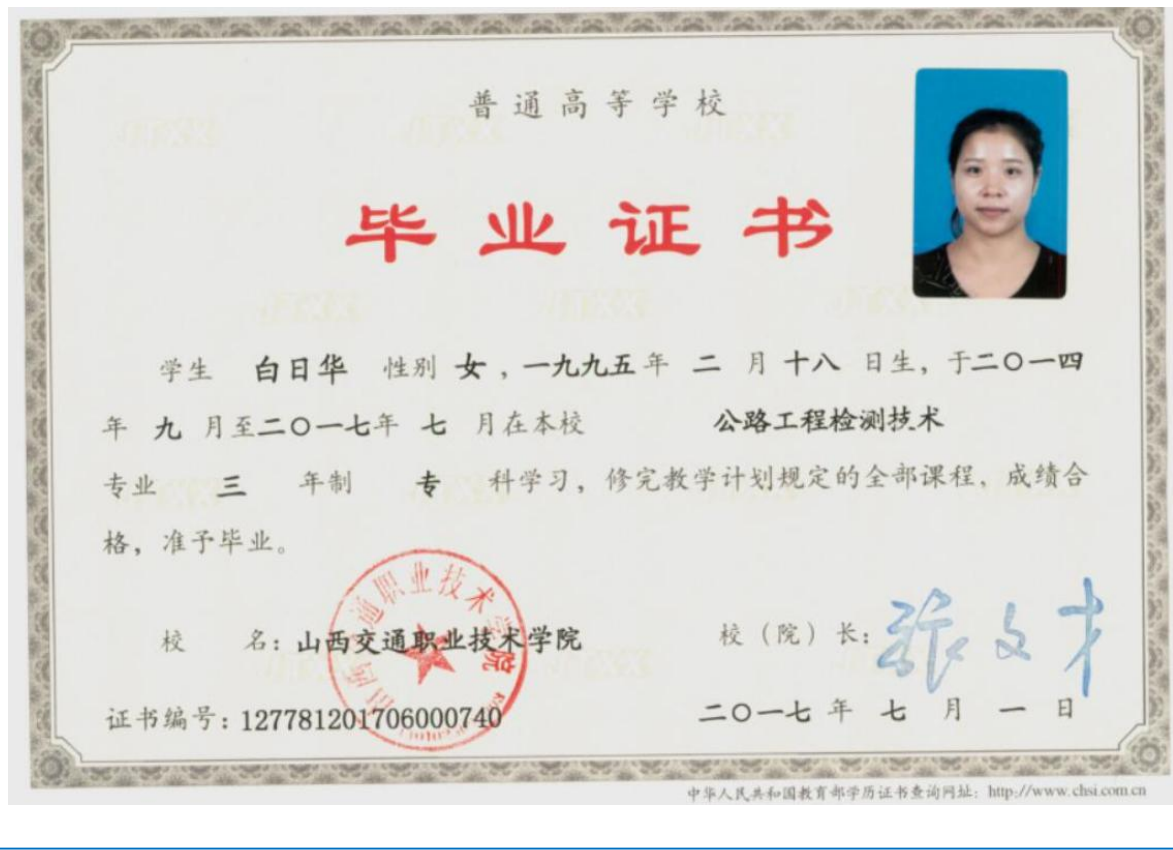 普通高等学校
毕业证书
学生 白日华 性别 女，一九九五年 二 月 十八 日生，于二〇一四
年 九 月至二〇一七年 七 月在本校 公路工程检测技术
专业 三 年制 专 科学习，修完教学计划规定的全部课程，成绩合
格，准予毕业。
校 名：山西交通职业技术学院
校（院）长：张文才
证书编号：127781201706000740
二〇一七 年 七 月 一 日
中华人民共和国教育部学历证书查询网址：http://www.chsi.com.cn